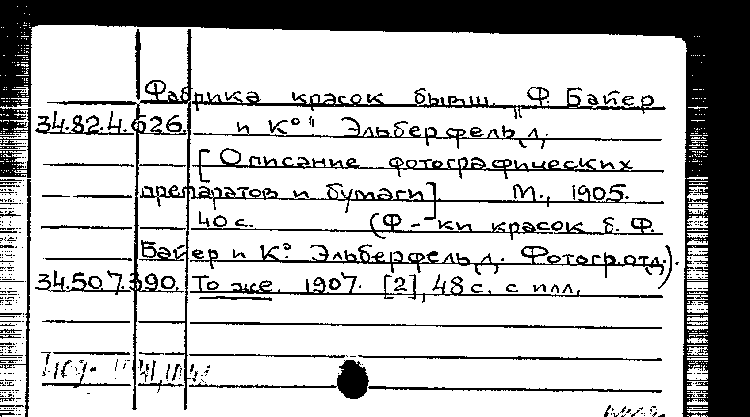 Фабрика красок бывш. „Ф. Байер
34.82.4.626. и К°" Эльберфельд,
[Описание фотографических
препаратов и бумаги] М., 1905.
40 с. (Ф-ки красок б. Ф.
Байер и К° Эльберфельд. Фотогр. отд.).
34.50.7.390. То же. 1907. [2], 48 с. с илл.